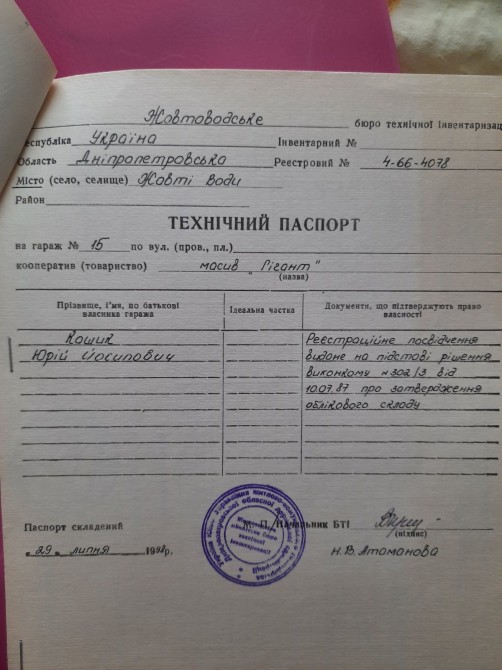 Жовтоводське бюро технічної інвентаризац
еспубліка Україна Інвентарний №
Область Дніпропетровська Реєстровий № 4-66-4078
Місто (село, селище) Жовті Води
Район
ТЕХНІЧНИЙ ПАСПОРТ
на гараж № 15 по вул. (пров., пл.)
кооператив (товариство) масив "Гігант"
(назва)
Прізвище, і'мя, по батькові власника гаража
Ідеальна частка
Документи, що підтверджують право власності
Кошик
Юрій Йосипович
Реєстраційне посвідчення
видане на підстові рішення
виконкому №302/3 від
10.07.87 про затвердження
облікового складу
Паспорт складений М. П. Начальник БТІ
(підпис)
"29" липня 1998р. Н.В. Атаманова